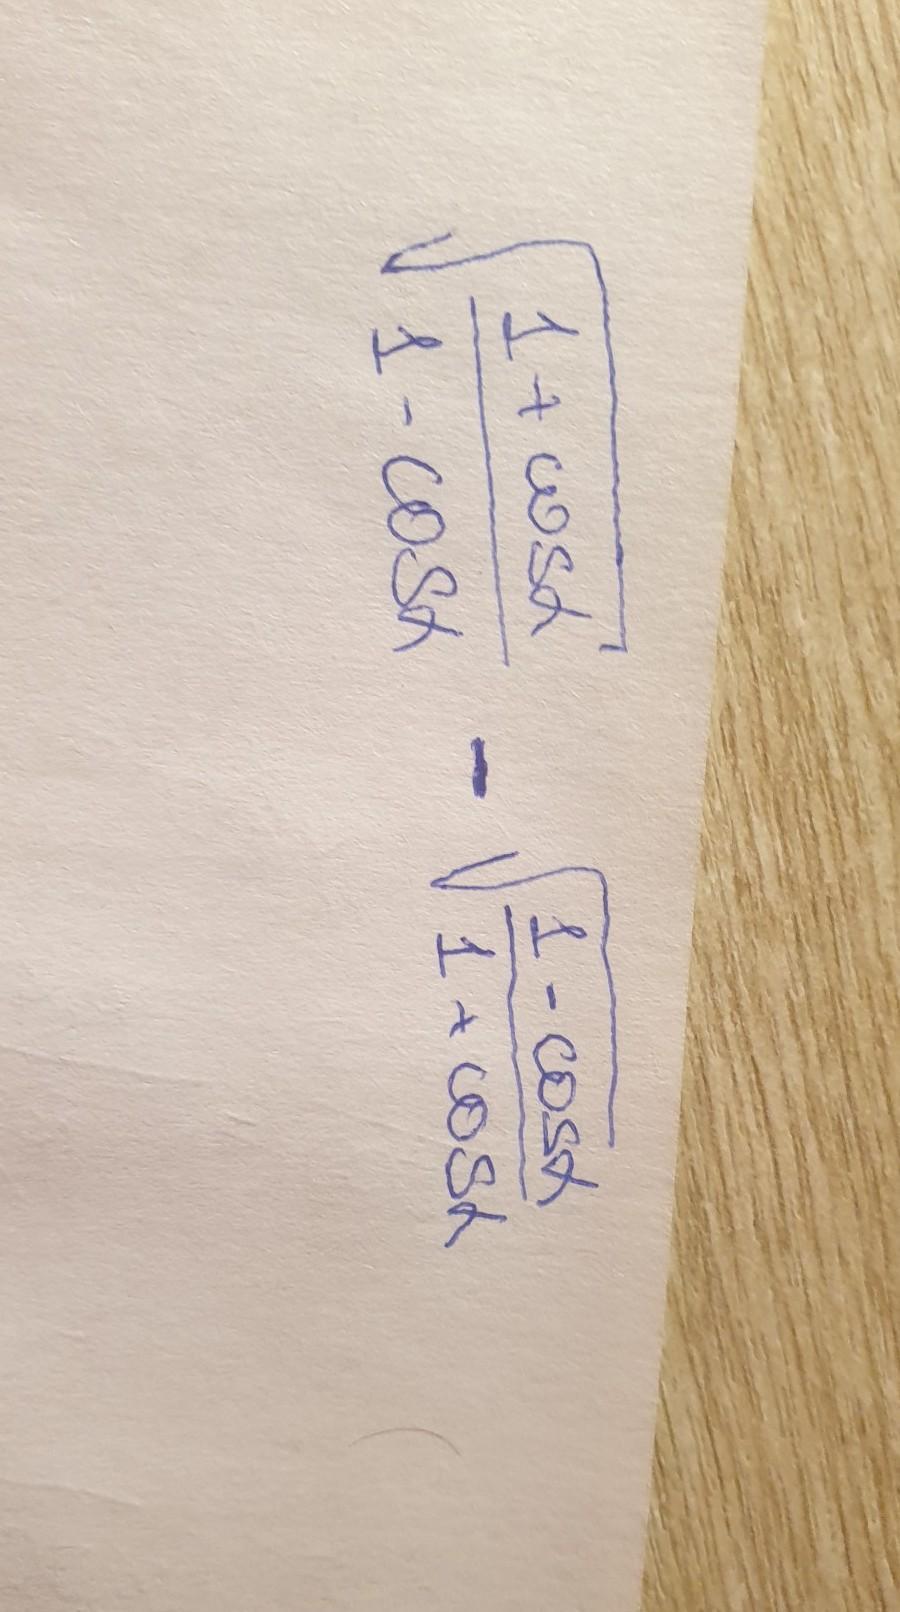 √(1 + cosα / 1 - cosα) - √(1 - cosα / 1 + cosα)